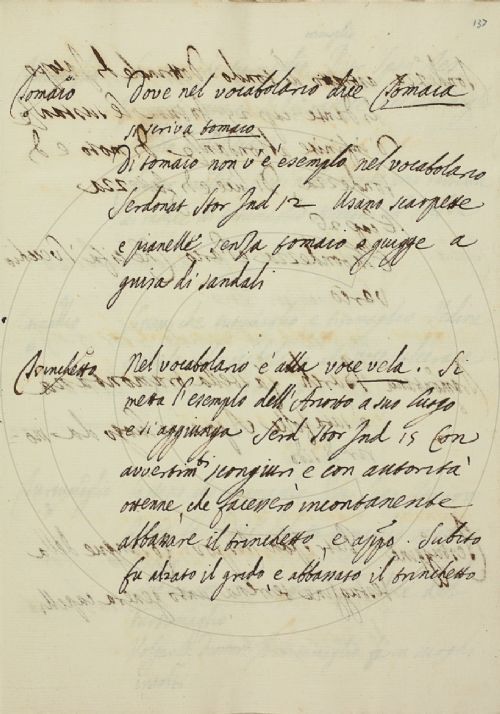 137
Tomaio Dove nel vocabolario dice Tomaia
si scriva tomaio
Di tomaio non v'è esempio nel vocabolario
Serdonat Stor Ind 12 Usano scarpette
e pianelle senza tomaio e guigge a
guisa di sandali
Trinchetto Nel vocabolario è alla voce vela. Si
metta l'esempio dell'Ariosto a suo luogo
e si aggiunga Serd Stor Ind 15 Con
avvertimti scongiuri e con autorità
ottenne, che facessero incontanente
abbassare il trinchetto, e appo. Subito
fu alzato il grido e abbassato il trinchetto